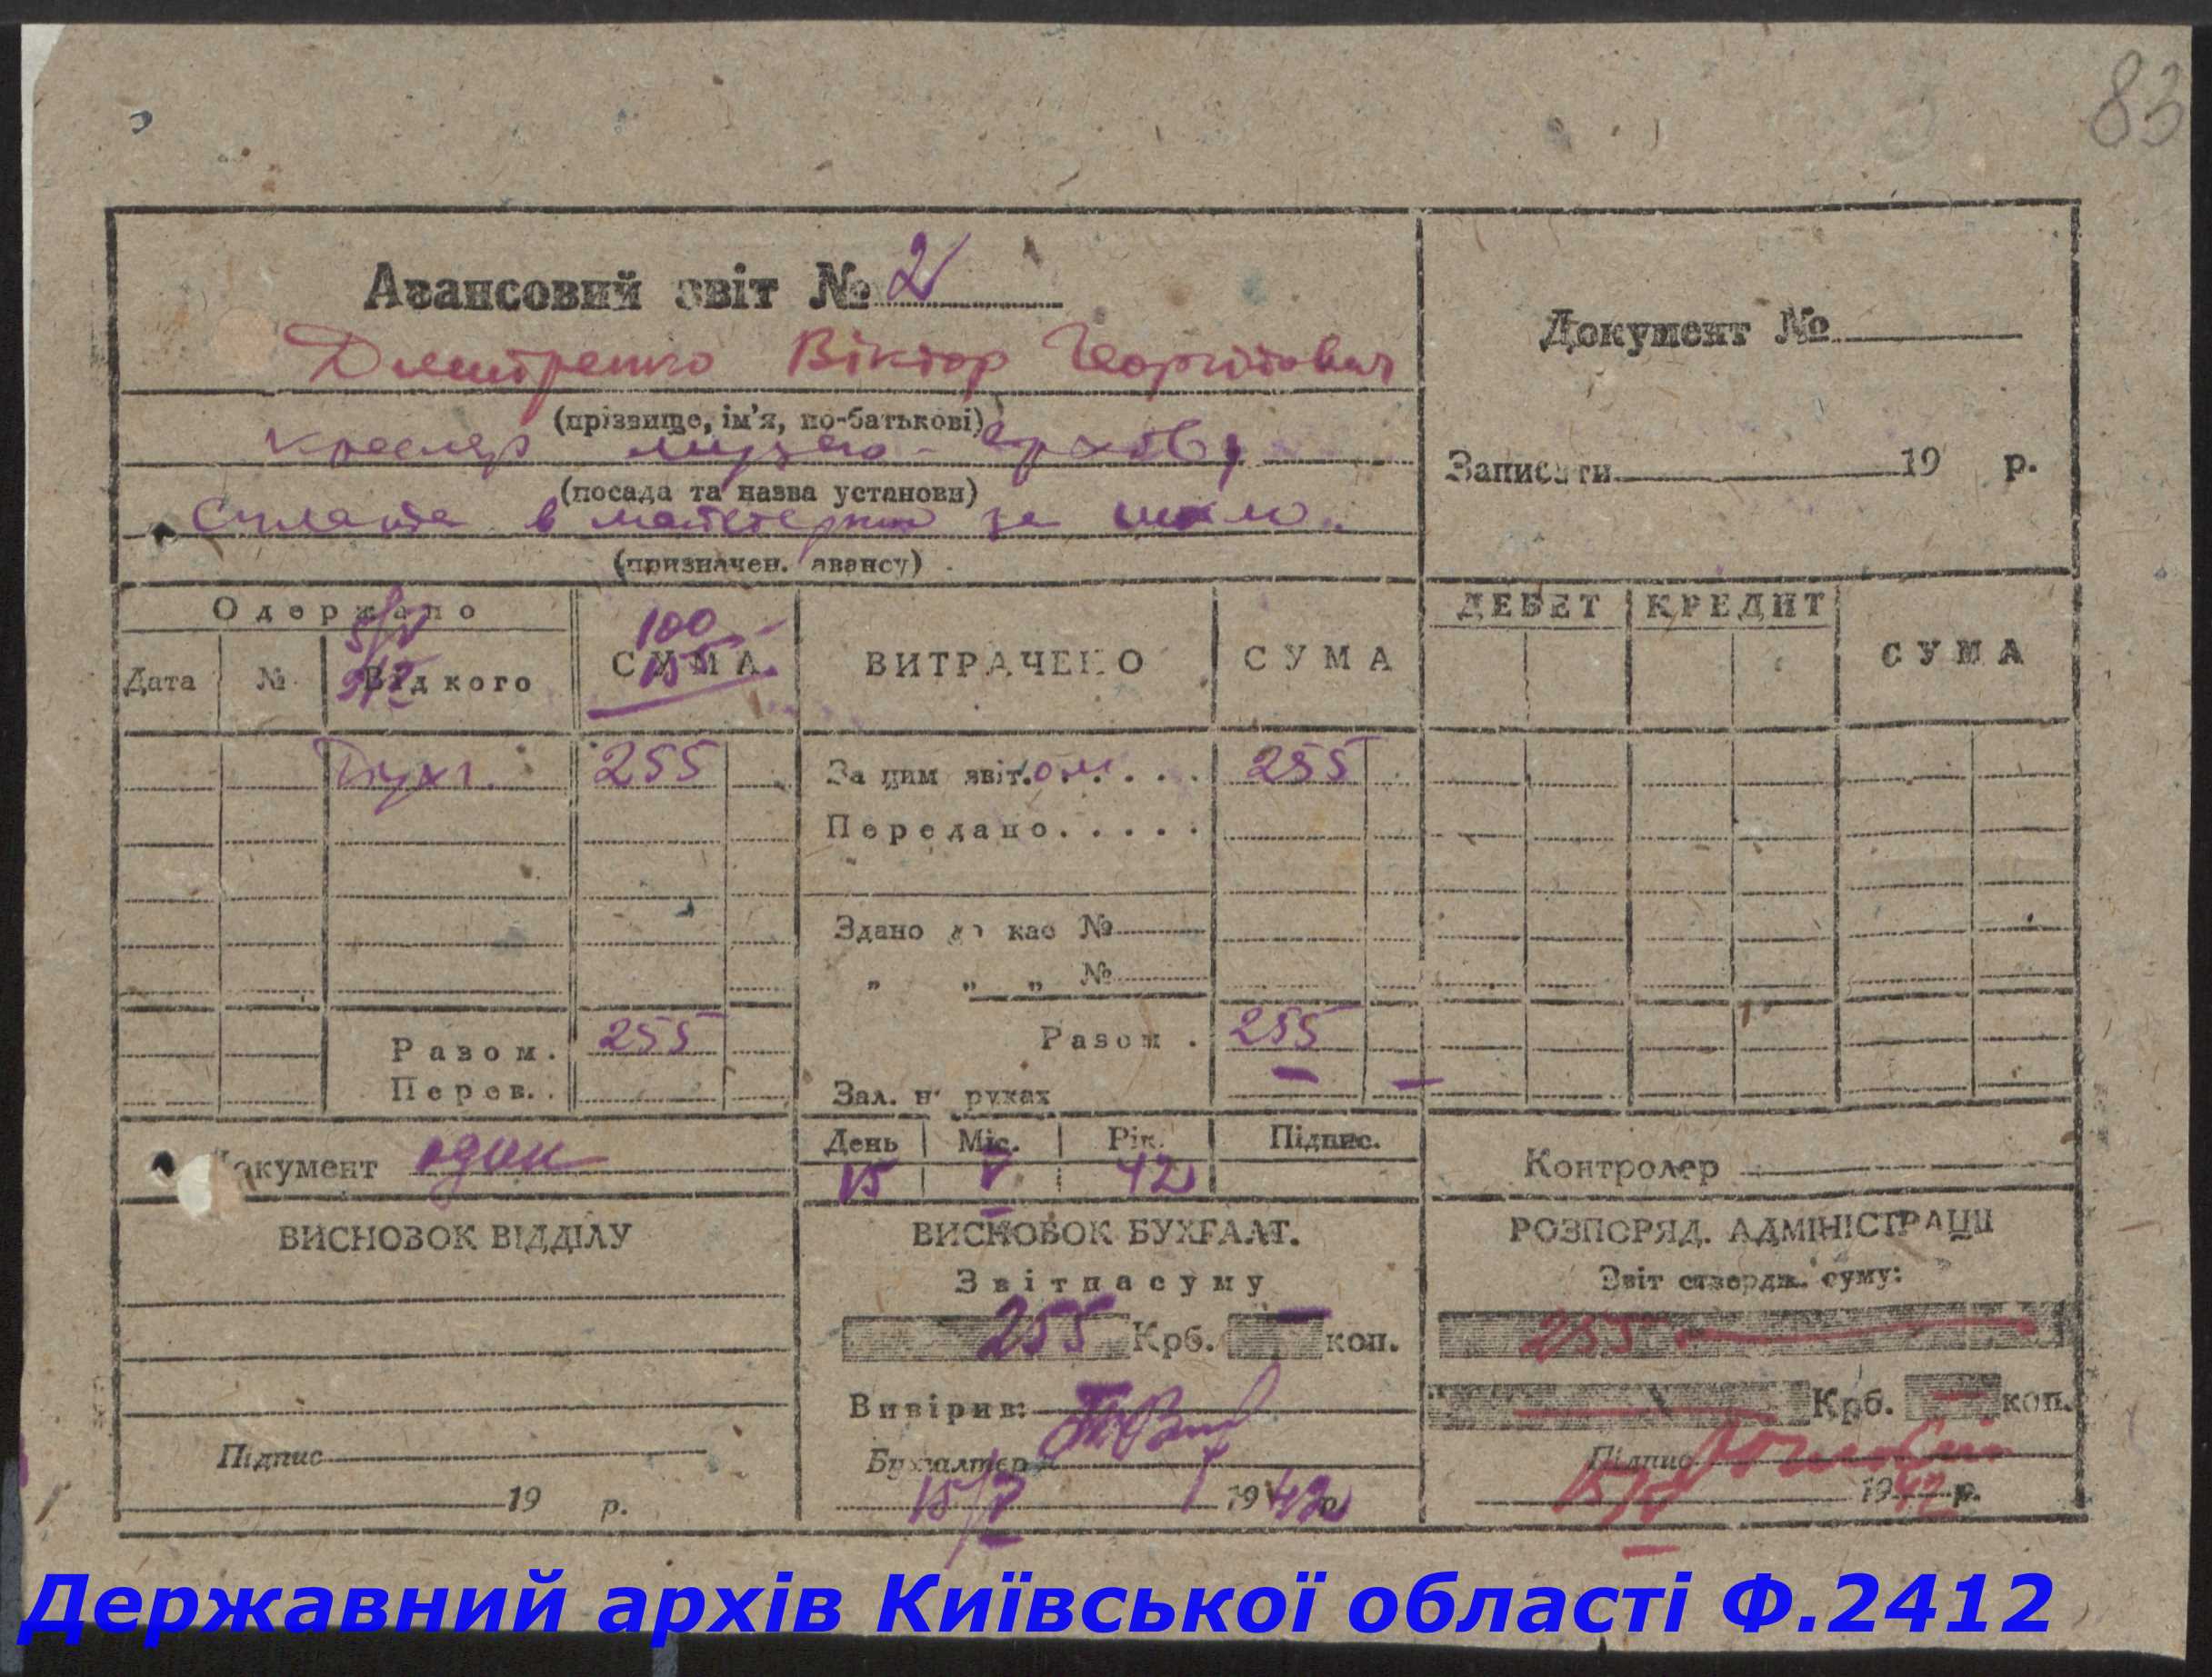 83
Авансовий звіт № 2
Дмитренко Віктор Георгійович
(прізвище, ім'я, по-батькові)
кресляр музею-архіву
(посада та назва установи)
Сплата в майстерню за
(призначен. авансу)
Документ №
Записати 19 р.
Одержано
Дата № Від кого
5/V 100
СУМА
ВИТРАЧЕНО СУМА
ДЕБЕТ КРЕДИТ СУМА
Бухг. 255
За цим звіт.ом 255
Передано.....
Здано до кас №
" " " №
Разом. 255
Разом . 255
Перев..
Зал. на руках
Документ один
День Міс. Рік. Підпис.
15 V 42
Контролер
ВИСНОВОК ВІДДІЛУ
Підпис
19 р.
ВИСНОВОК БУХГАЛТ.
Звіт на суму
255 Крб. — коп.
Вивірив:
Бухгалтер
15/V 1942 р.
РОЗПОРЯД. АДМІНІСТРАЦІЇ
Звіт ствердж. суму:
255
Крб. — коп.
Підпис
15/V 1942 р.
Державний архів Київської області Ф.2412